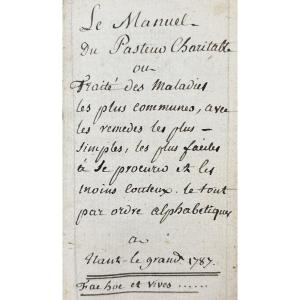 Le Manuel
Du Pasteur Charitable
ou
Traité des Maladies
les plus communes, avec
les remedes les plus
simples, les plus faciles
à se procurer et les
moins couteux. le tout
par ordre alphabetique
a
le grand 1787.
Fac hoc et vives ......